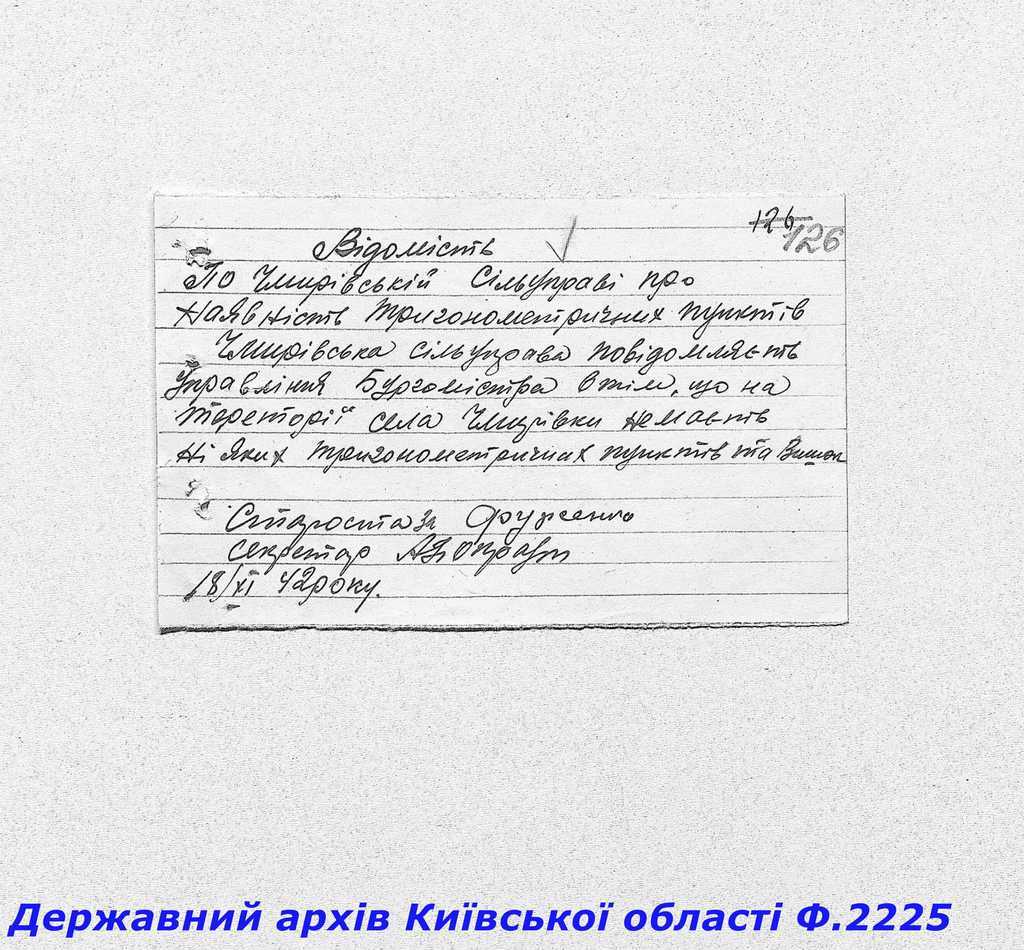 126
126
Відомість
По Чмирівській Сільуправі про
Наявність тригонометричних пунктів
Чмирівська сільуправа повідомляєть
Управління Бургомістра втім, що на
тереторії села Чмирівки немаєть
Ні яких тригонометричних пунктів та Вишок
Староста за
Секретар
18/XI 42 року.
Державний архів Київської області Ф.2225